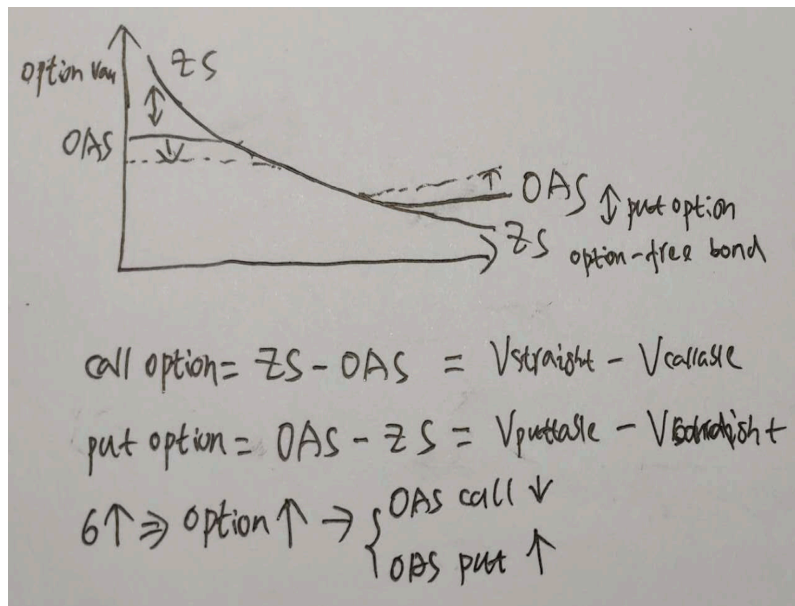 option Vau
ZS
OAS
OAS ↕ put option
ZS
option-free bond
call option = ZS - OAS = Vstraight - Vcallable
put option = OAS - ZS = Vputtable - V
6↑ ⇒ option ↑ → { OAS call ↓
OAS put ↑